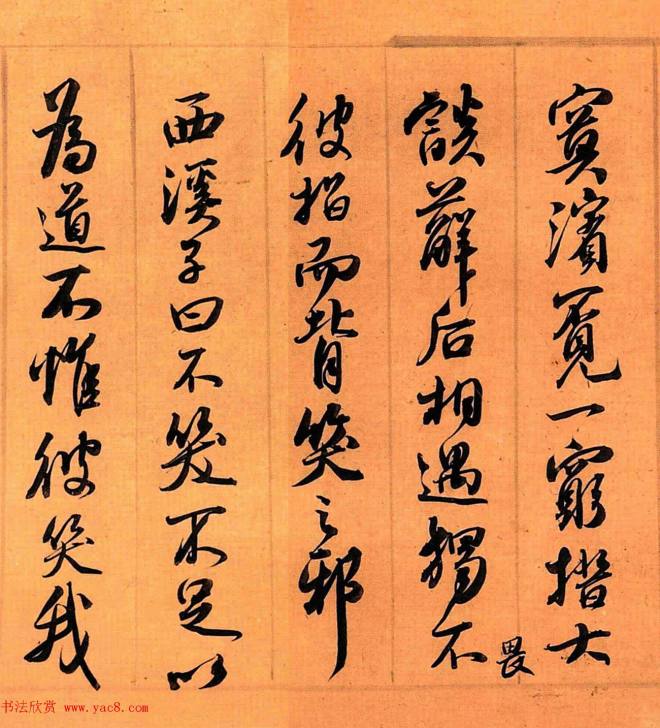 寞濱覓一窮措大
談薢后相遇獨不畏
彼指而背笑之邪
西溪子曰不笑不足以
為道不惟彼笑我
书法欣赏 www.yac8.com